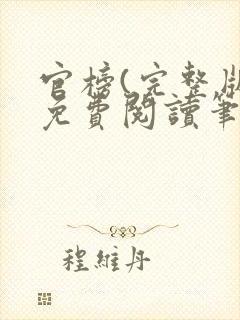 官榜(完整版
免費閱讀筆
程維丹